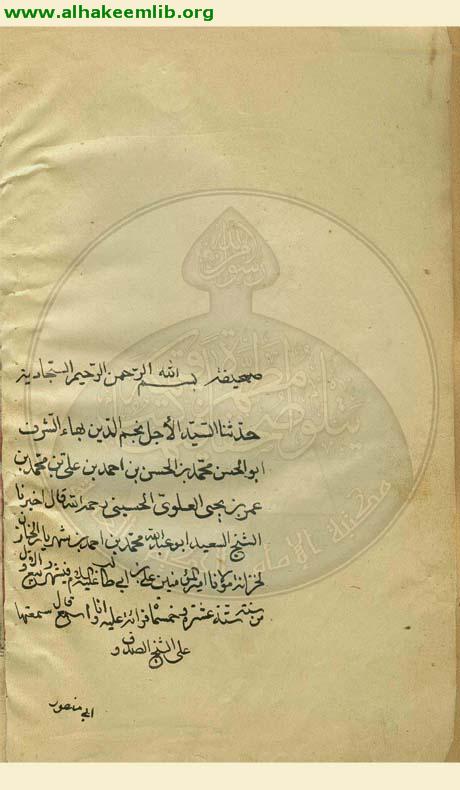 www.alhakeemlib.org
صحيفة بسم الله الرحمن الرحيم السجادية
حدثنا السيد الأجل نجم الدين بهاء الشرف
ابو الحسن محمد بن الحسن بن احمد بن علي بن محمد بن
عمر بن يحيى العلوي الحسيني رحمه الله قال اخبرنا
الشيخ السعيد ابو عبد الله محمد بن احمد بن شهريار الخازن
لخزانة مولانا امير المؤمنين علي بن ابي طالب عليه السلام في شهر ربيع الاول
من سنة ستة عشرة وخمسمائة قرائة عليه وانا اسمع قال سمعتها
على الشيخ الصدوق
ابي منصور